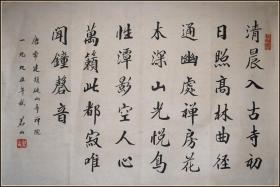 清晨入古寺初
日照髙林曲径
通幽處禅房花
木深山光悦鳥
性潭影空人心
萬籟此都寂唯
聞鐘磬音
唐常建題破山寺禅院
一九九五年秋